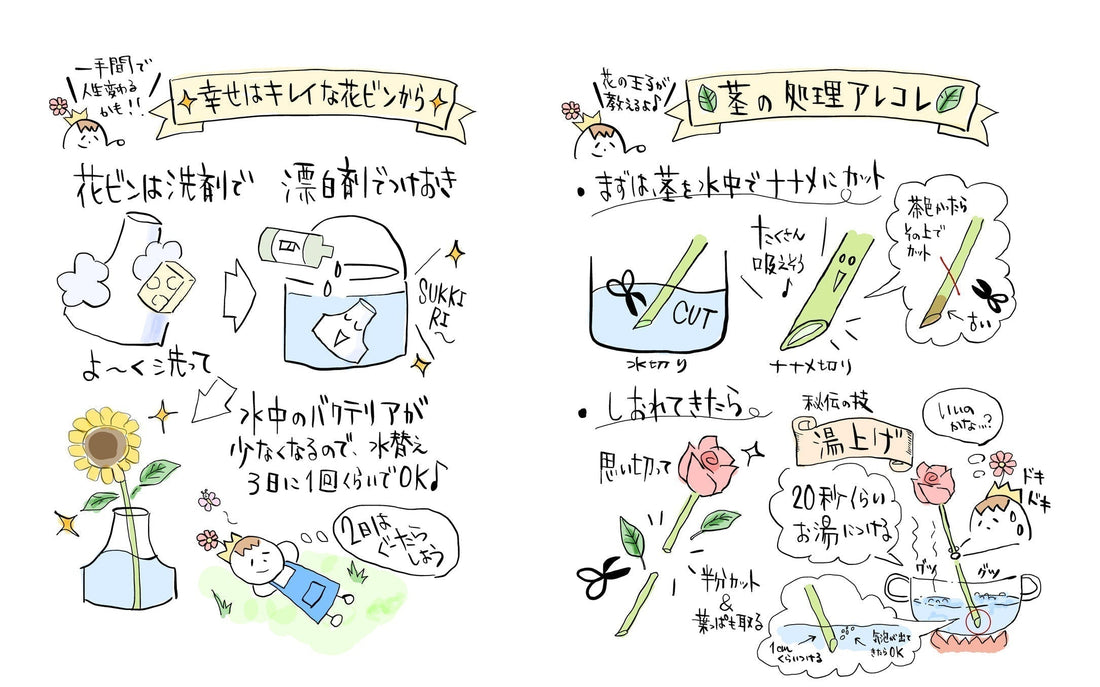 一手間で
人生変わる
かも!!
幸せはキレイな花ビンから
花ビンは洗剤で
漂白剤でつけおき
SUKKI
RI〜
よ〜く洗って
水中のバクテリアが
少なくなるので、水替え
3日に1回くらいでOK♪
2日は
ぐーたら
しよう
花の王子が
教えるよ♪
茎の処理アレコレ
・まずは、茎を水中でナナメにカット
CUT
水切り
たくさん
吸えそう
♪
ナナメ切り
茶色かったら
その上で
カット
古い
・しおれてきたら
思い切って
半分カット
&
葉っぱも取る
秘伝の技
湯上げ
いいの
かな…?
20秒くらい
お湯につける
ドキ
ドキ
グツ
グツ
1cm
くらいつける
気泡が出て
きたらOK